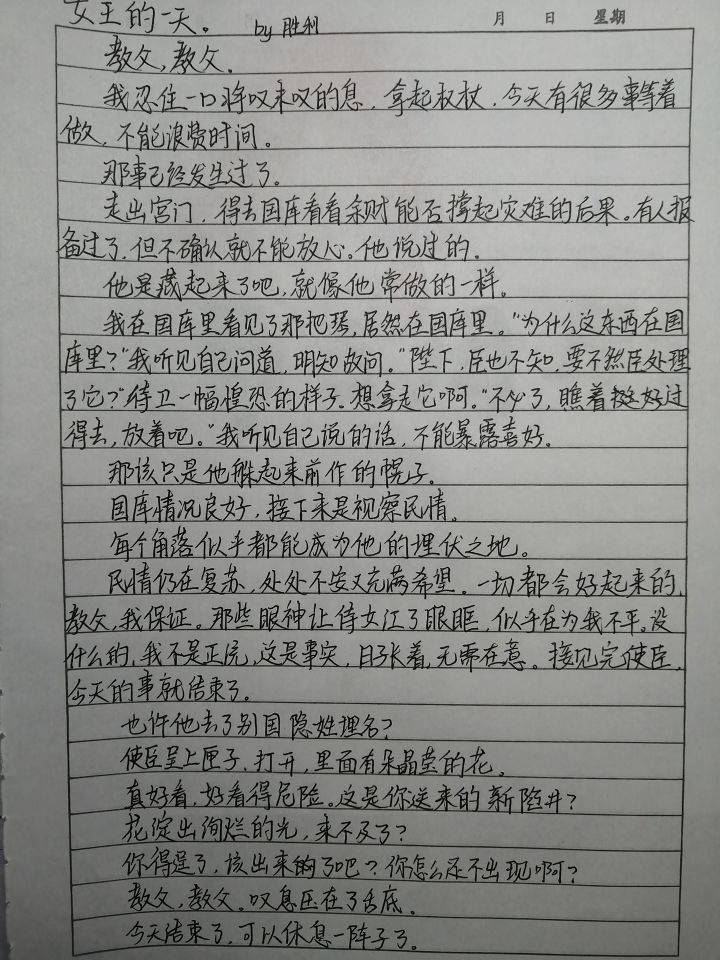 女王的一天。 by 胜利 月 日 星期
教父，教父。
我忍住一口将叹未叹的息，拿起权杖，今天有很多事等着
做，不能浪费时间。
那事已经发生过了。
走出宫门，得去国库看看余财能否撑起灾难的后果。有人报
备过了，但不确认就不能放心。他说过的。
他是藏起来了吧，就像他常做的一样。
我在国库里看见了那把琴，居然在国库里。“为什么这东西在国
库里？”我听见自己问道，明知故问。“陛下，臣也不知，要不然臣处理
了它？”侍卫一幅惶恐的样子。想拿走它啊。“不必了，瞧着挺好过
得去，放着吧。”我听见自己说的话，不能暴露喜好。
那该只是他躲起来前作的幌子。
国库情况良好，接下来是视察民情。
每个角落似乎都能成为他的埋伏之地。
民情仍在复苏，处处不安又充满希望。一切都会好起来的，
教父，我保证。那些眼神让侍女红了眼眶，似乎在为我不平。没
什么的，我不是正统，这是事实，日子长着，无需在意。接见完使臣，
今天的事就结束了。
也许他去了别国隐姓埋名？
使臣呈上匣子，打开，里面有朵晶莹的花。
真好看，好看得危险。这是你送来的新陷井？
花绽出绚烂的光，来不及了？
你得逞了，该出来的了吧？你怎么还不出现啊？
教父，教父。叹息压在了舌底。
今天结束了，可以休息一阵子了。